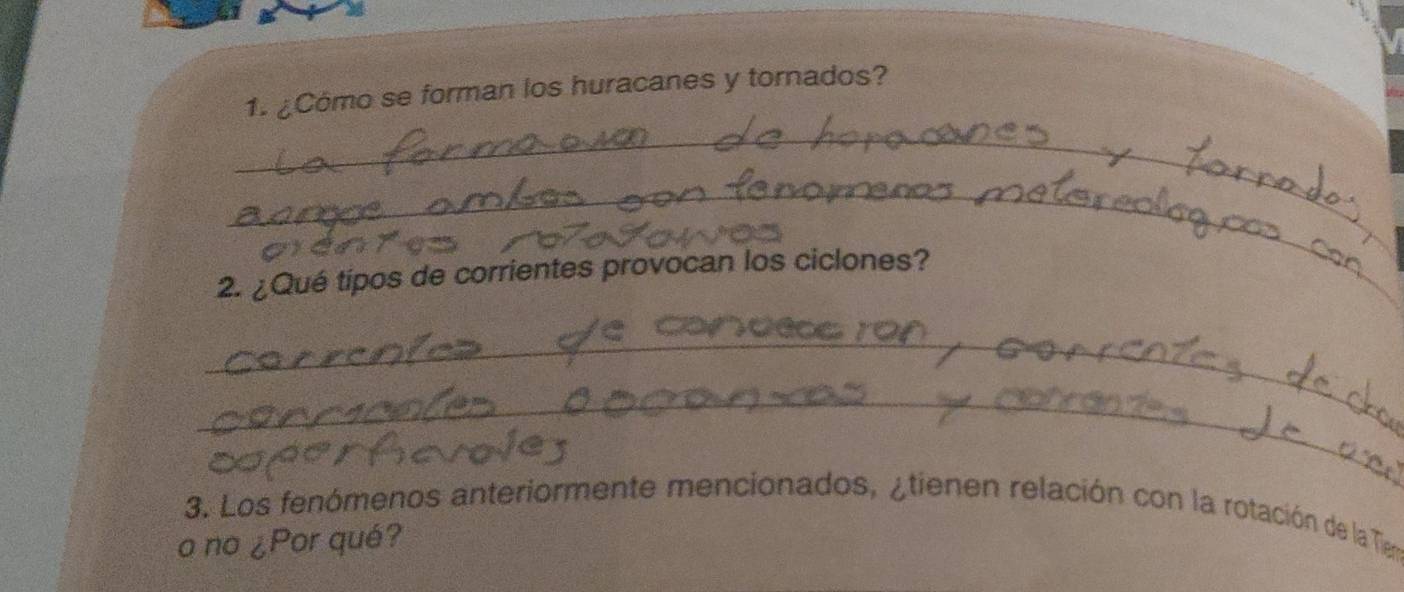 1. ¿Cómo se forman los huracanes y tornados?
La formacion de horacanes y tornados,
aunque ambos son fenomenos metereologicos con
vientos rotativos
2. ¿Qué tipos de corrientes provocan los ciclones?
corrientes de conveccion, corrientes de
corrientes oceanicas y corrientes de
superficiales
3. Los fenómenos anteriormente mencionados, ¿tienen relación con la rotación de la Tierra
o no ¿Por qué?